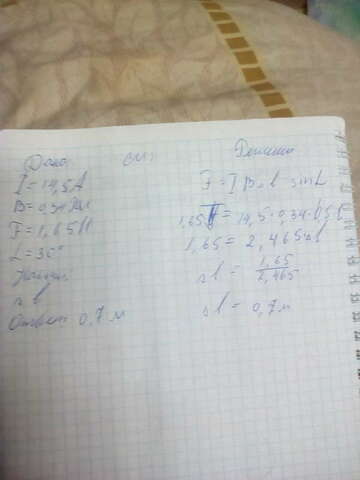 Дано: СИ:
I = 14,5 А
B = 0,34 Тл
F = 1,65 Н
L = 30°
Найти:
Δl
Ответ: 0,7 м
Решение
F = I B Δl sin L
1,65 = 14,5 · 0,34 · 0,5 Δl
1,65 = 2,465 Δl
Δl = 1,65 / 2,465
Δl = 0,7 м